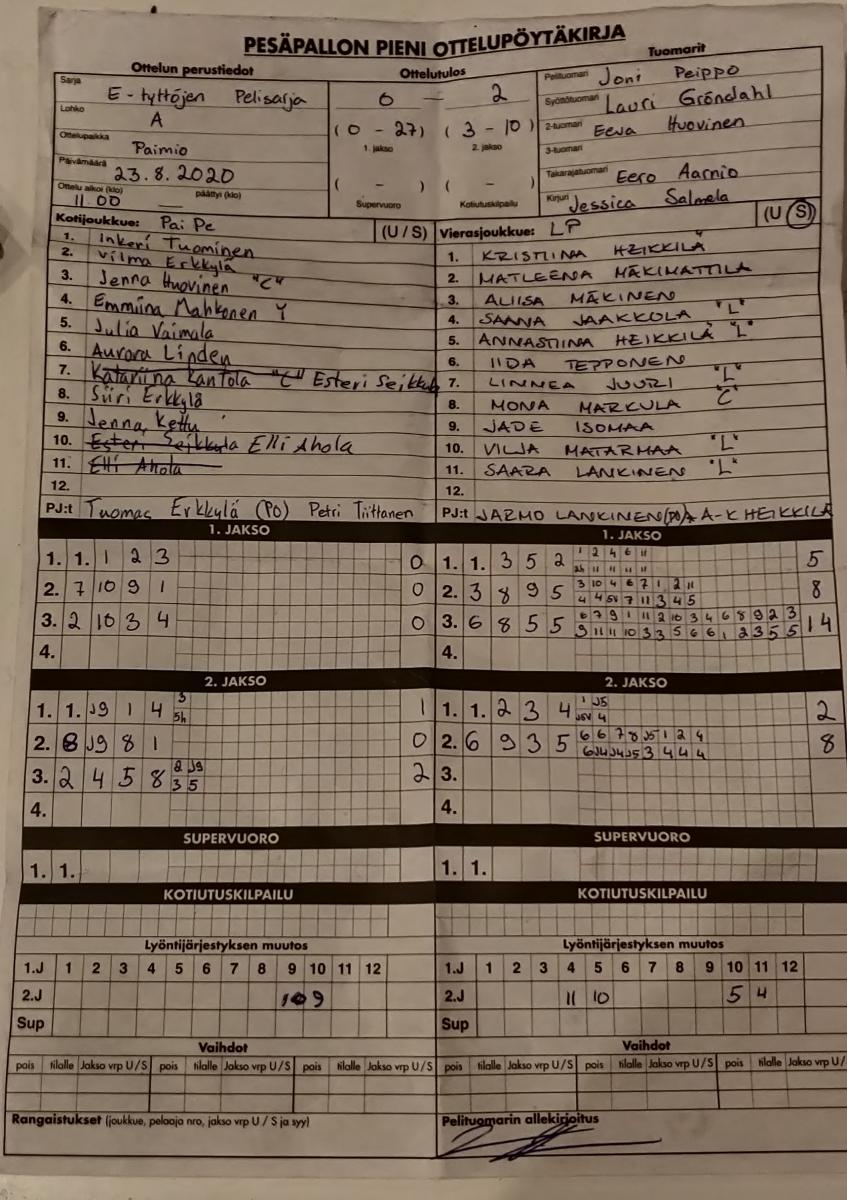 PESÄPALLON PIENI OTTELUPÖYTÄKIRJA
Ottelun perustiedot
Ottelutulos
Tuomarit
Sarja E-tyttöjen Pelisarja
Lohko A
Ottelupaikka Paimio
Päivämäärä 23.8.2020
Ottelu alkoi (klo) 11.00 päättyi (klo) —
0 – 2
(0 - 27) (3 - 10)
1. jakso 2. jakso
( - ) ( - )
Supervuoro Kotiutuskilpailu
Pelituomari Joni Peippo
Syöttötuomari Lauri Gröndahl
2-tuomari Eeva Huovinen
3-tuomari
Takarajatuomari Eero Aarnio
Kirjuri Jessica Salmela
Kotijoukkue: Pai Pe (U / S)
1. Inkeri Tuominen
2. Vilma Erkkylä
3. Jenna Huovinen "C"
4. Emmiina Mahkonen Y
5. Julia Vaimala
6. Aurora Linden
7. Katariina Kantola "C" Esteri Seikkula
8. Siiri Erkkylä
9. Jenna Kettu
10. Esteri Seikkula Elli Ahola
11. Elli Ahola
12.
PJ:t Tuomas Erkkylä (PO) Petri Tiittanen
Vierasjoukkue: LP (U / S)
1. KRISTIINA HEIKKILÄ
2. MATLEENA MÄKIMATTILA
3. ALIISA MÄKINEN
4. SAANA JAAKKOLA "L"
5. ANNASTIINA HEIKKILÄ "L"
6. IIDA TEPPONEN
7. LINNEA JUURI "L"
8. MONA MARKULA "C"
9. JADE ISOMAA
10. VILJA MATARMAA "L"
11. SAARA LANKINEN "L"
12.
PJ:t JARMO LANKINEN (PO) A-K HEIKKILÄ
1. JAKSO
1. 1. 1 2 3 0
2. 7 10 9 1 0
3. 2 10 3 4 0
4.
2. JAKSO
1. 1. J9 1 4 3 1
5h
2. 8 J9 8 1 0
3. 2 4 5 8 2 J9 2
3 5
4.
SUPERVUORO
1. 1.
KOTIUTUSKILPAILU
Lyöntijärjestyksen muutos
1.J 1 2 3 4 5 6 7 8 9 10 11 12
2.J 10 9
Sup
Vaihdot
pois tilalle Jakso vrp U/S pois tilalle Jakso vrp U/S pois tilalle Jakso vrp U/S
Rangaistukset (joukkue, pelaaja nro, jakso vrp U / S ja syy)
1. JAKSO
1. 1. 3 5 2 1 2 4 6 11 5
2h 11 11 11 11
2. 3 8 9 5 3 10 4 6 7 1 2 11 8
4 4 5V 7 11 3 4 5
3. 6 8 5 5 6 7 9 1 11 2 10 3 4 6 8 9 2 3 14
9 11 11 10 3 3 5 6 6 1 2 3 5 5
4.
2. JAKSO
1. 1. 2 3 4 1 J5 2
J5V 4
2. 6 9 3 5 6 6 7 8 J5 1 2 4 8
6 J4 J4 J5 3 4 4 4
3.
4.
SUPERVUORO
1. 1.
KOTIUTUSKILPAILU
Lyöntijärjestyksen muutos
1.J 1 2 3 4 5 6 7 8 9 10 11 12
2.J 11 10 5 4
Sup
Vaihdot
pois tilalle Jakso vrp U/S pois tilalle Jakso vrp U/S pois tilalle Jakso vrp U/
Pelituomarin allekirjoitus